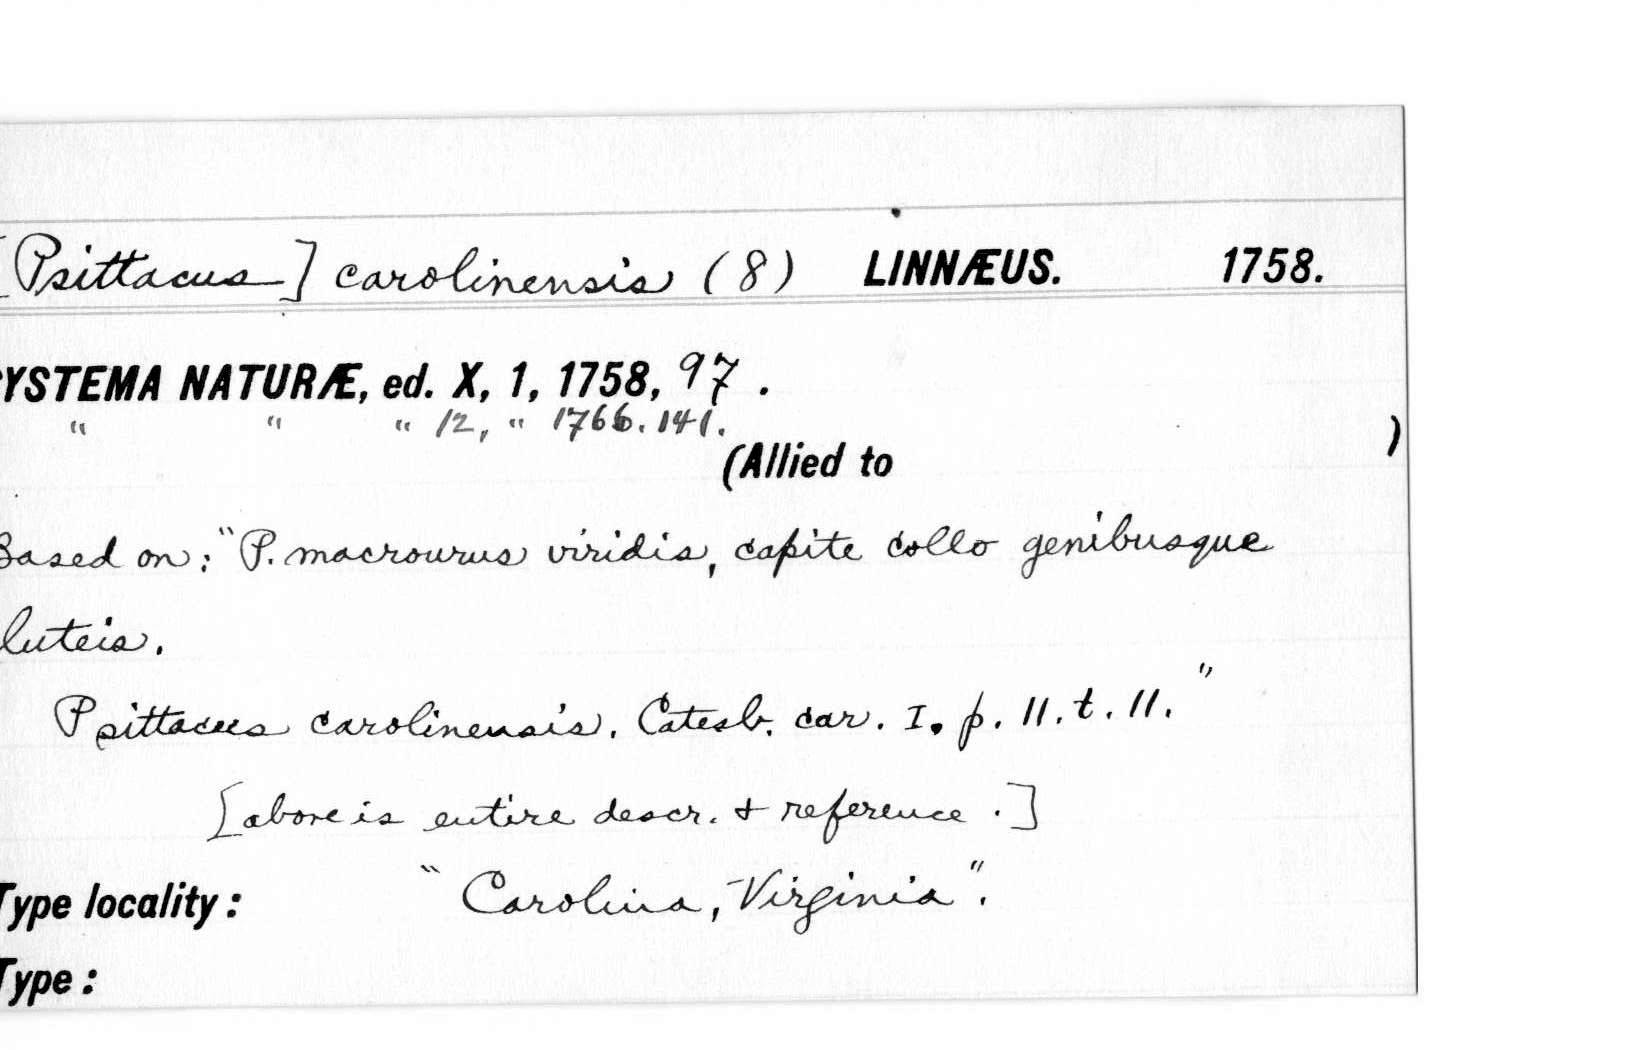 [Psittacus] carolinensis (8) LINNÆUS. 1758.
SYSTEMA NATURÆ, ed. X, 1, 1758, 97.
" " " 12, " 1766. 141.
(Allied to )
Based on: "P. macrourus viridis, capite collo genibusque
luteis.
Psittacus carolinensis. Catesb. car. I. p. 11. t. 11."
[above is entire descr. & reference.]
Type locality: "Carolina, Virginia".
Type: